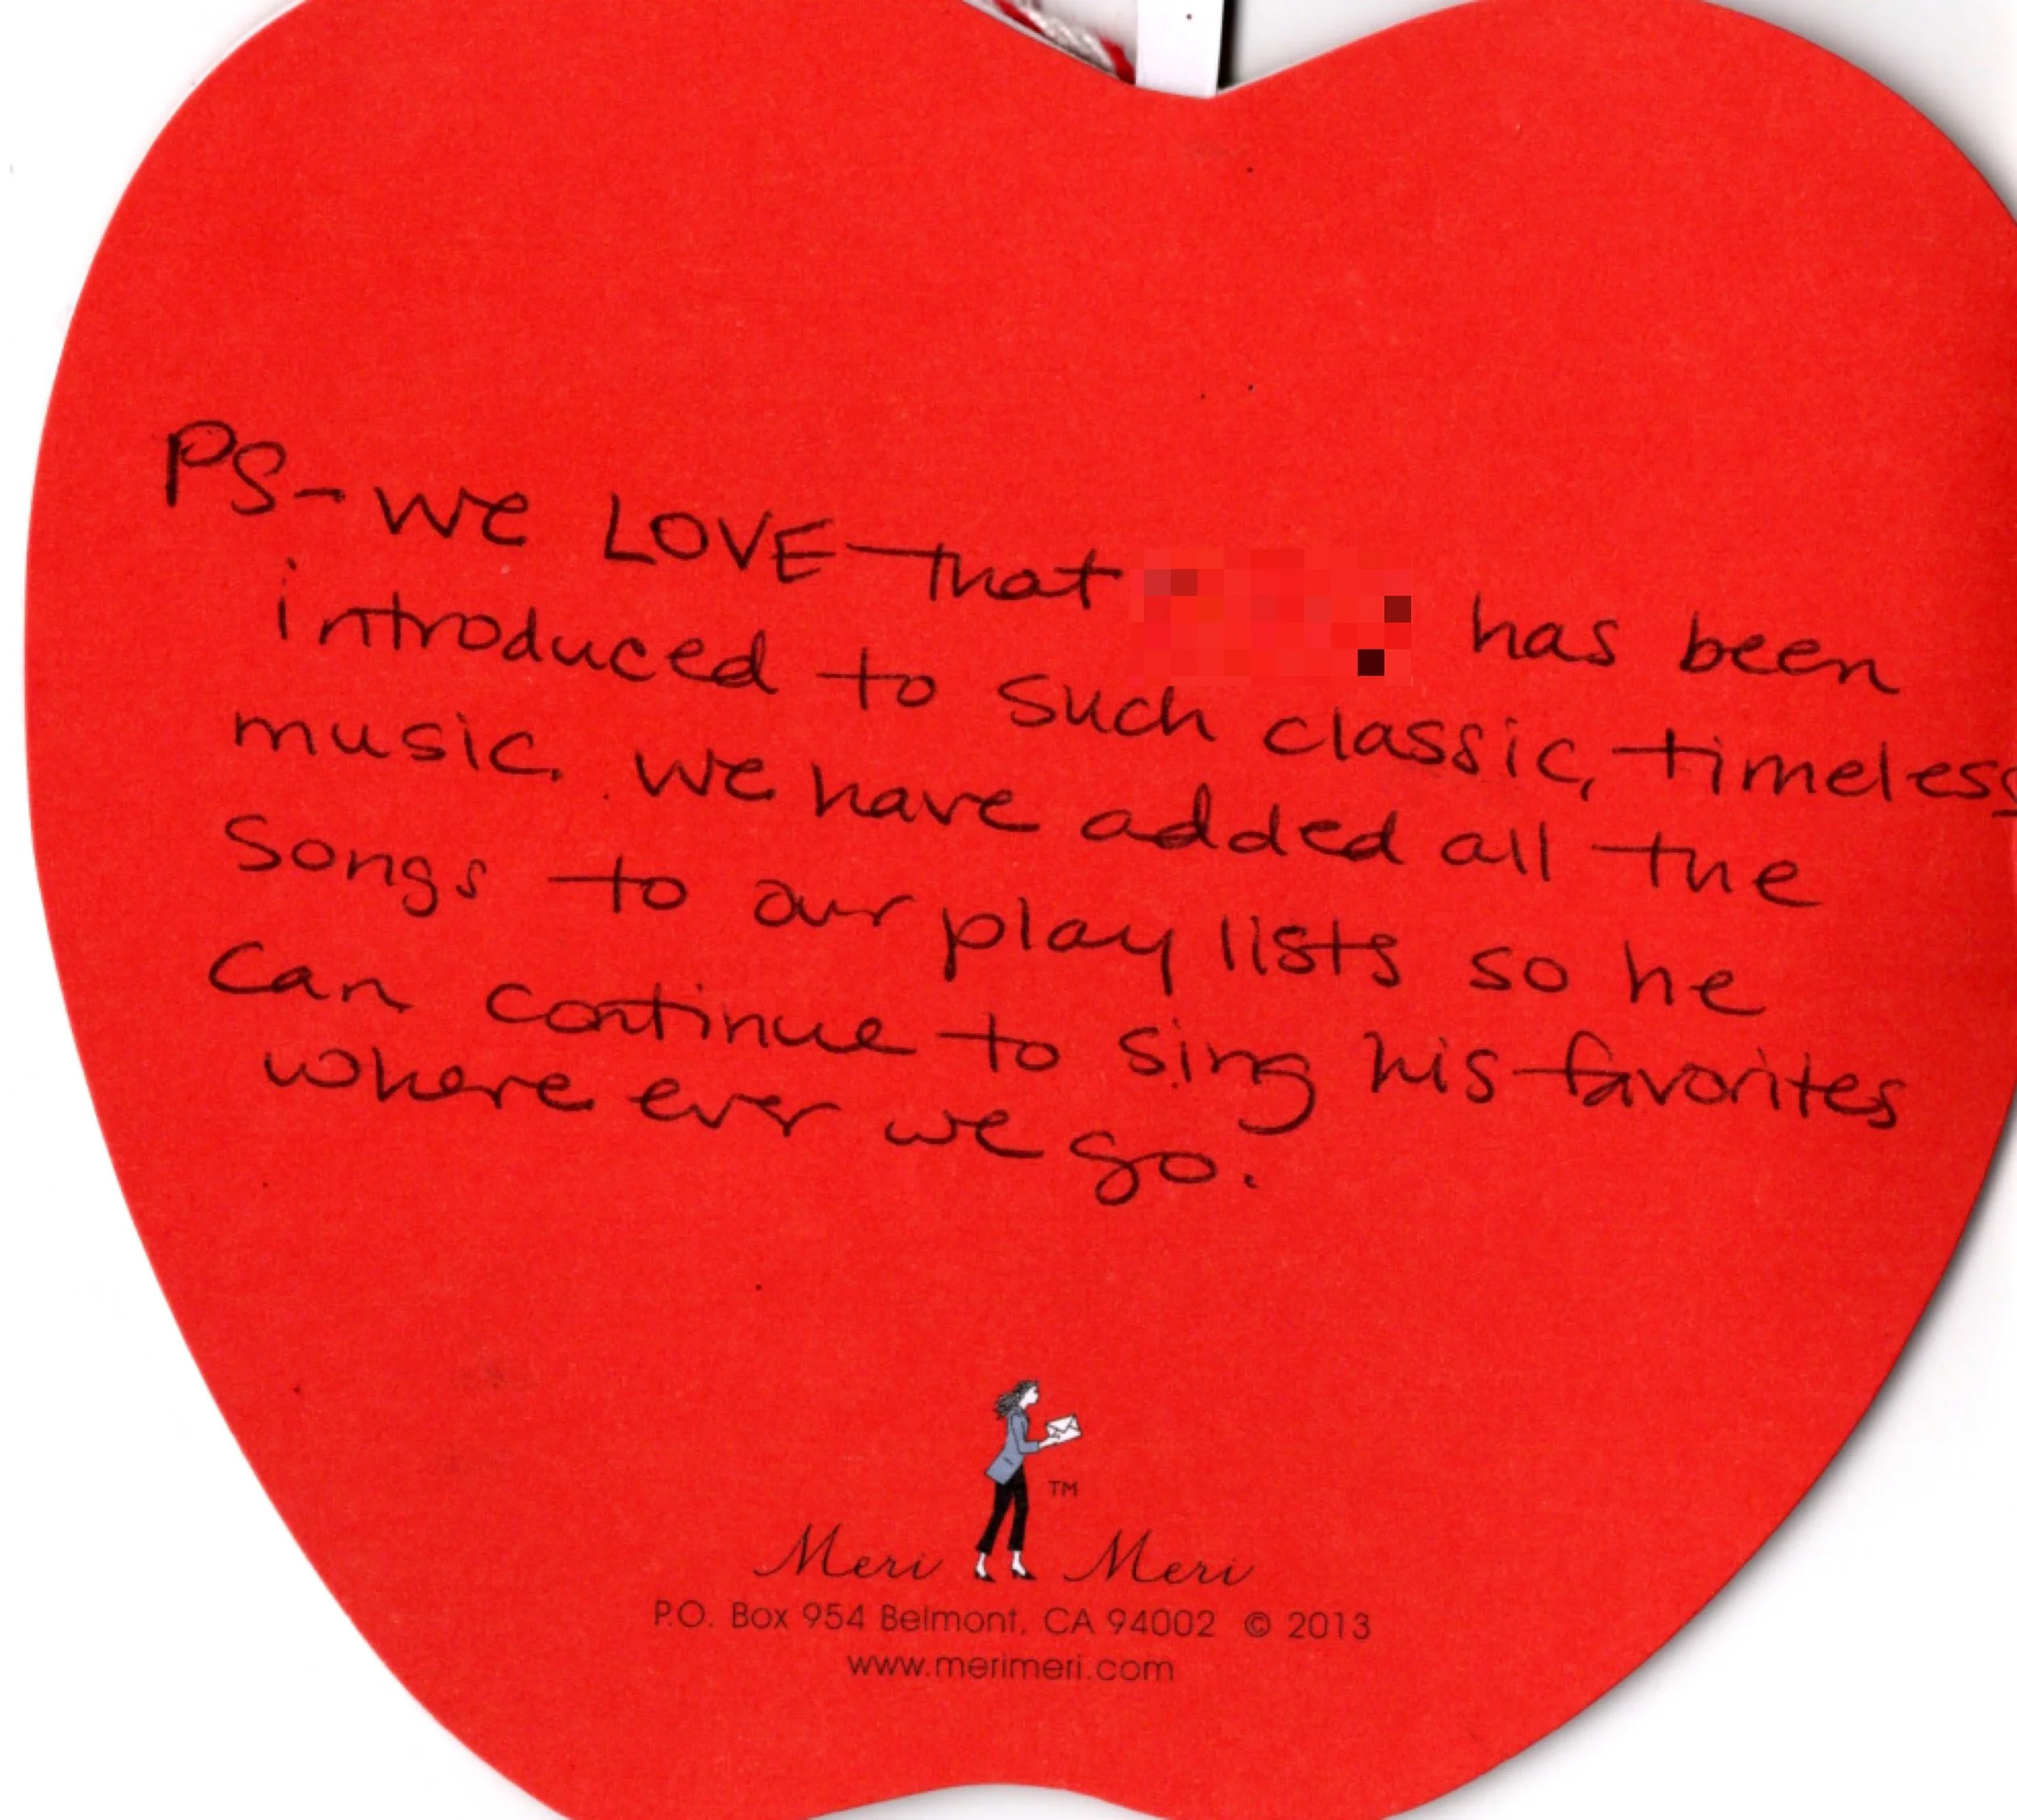 PS- we LOVE that has been
introduced to such classic, timeless
music. we have added all the
songs to our play lists so he
can continue to sing his favorites
where ever we go.
TM
Meri Meri
P.O. Box 954 Belmont, CA 94002 © 2013
www.merimeri.com